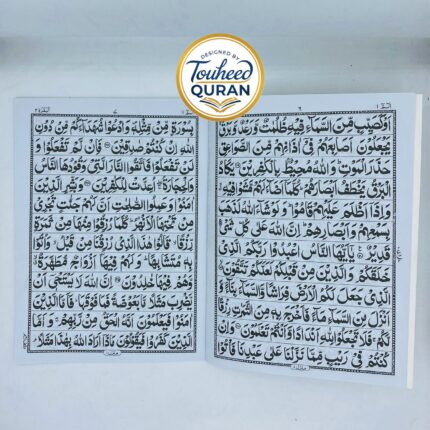 DESIGNED BY
Touheed
QURAN
٦
اَوْ كَصَيِّبٍ مِّنَ السَّمَآءِ فِيْهِ ظُلُمٰتٌ وَّرَعْدٌ وَّبَرْقٌ
يَجْعَلُوْنَ اَصَابِعَهُمْ فِيْٓ اٰذَانِهِمْ مِّنَ الصَّوَاعِقِ
حَذَرَ الْمَوْتِ وَاللّٰهُ مُحِيْطٌۢ بِالْكٰفِرِيْنَ يَكَادُ
الْبَرْقُ يَخْطَفُ اَبْصَارَهُمْ كُلَّمَآ اَضَآءَ لَهُمْ مَّشَوْا فِيْهِ
وَاِذَآ اَظْلَمَ عَلَيْهِمْ قَامُوْا وَلَوْ شَآءَ اللّٰهُ لَذَهَبَ
بِسَمْعِهِمْ وَاَبْصَارِهِمْ اِنَّ اللّٰهَ عَلٰى كُلِّ شَيْءٍ
قَدِيْرٌ يٰٓاَيُّهَا النَّاسُ اعْبُدُوْا رَبَّكُمُ الَّذِيْ
خَلَقَكُمْ وَالَّذِيْنَ مِنْ قَبْلِكُمْ لَعَلَّكُمْ تَتَّقُوْنَ
الَّذِيْ جَعَلَ لَكُمُ الْاَرْضَ فِرَاشًا وَّالسَّمَآءَ بِنَآءً وَّ
اَنْزَلَ مِنَ السَّمَآءِ مَآءً فَاَخْرَجَ بِهٖ مِنَ الثَّمَرٰتِ رِزْقًا
لَّكُمْ فَلَا تَجْعَلُوْا لِلّٰهِ اَنْدَادًا وَّاَنْتُمْ تَعْلَمُوْنَ وَاِنْ
كُنْتُمْ فِيْ رَيْبٍ مِّمَّا نَزَّلْنَا عَلٰى عَبْدِنَا فَاْتُوْا
٧
بِسُوْرَةٍ مِّنْ مِّثْلِهٖ وَادْعُوْا شُهَدَآءَكُمْ مِّنْ دُوْنِ
اللّٰهِ اِنْ كُنْتُمْ صٰدِقِيْنَ فَاِنْ لَّمْ تَفْعَلُوْا وَ
لَنْ تَفْعَلُوْا فَاتَّقُوا النَّارَ الَّتِيْ وَقُوْدُهَا النَّاسُ
وَالْحِجَارَةُ اُعِدَّتْ لِلْكٰفِرِيْنَ وَبَشِّرِ الَّذِيْنَ
اٰمَنُوْا وَعَمِلُوا الصّٰلِحٰتِ اَنَّ لَهُمْ جَنّٰتٍ تَجْرِيْ
مِنْ تَحْتِهَا الْاَنْهٰرُ كُلَّمَا رُزِقُوْا مِنْهَا مِنْ ثَمَرَةٍ
رِّزْقًا قَالُوْا هٰذَا الَّذِيْ رُزِقْنَا مِنْ قَبْلُ وَاُتُوْا
بِهٖ مُتَشَابِهًا وَلَهُمْ فِيْهَآ اَزْوَاجٌ مُّطَهَّرَةٌ
وَّهُمْ فِيْهَا خٰلِدُوْنَ اِنَّ اللّٰهَ لَا يَسْتَحْيٖٓ اَنْ
يَّضْرِبَ مَثَلًا مَّا بَعُوْضَةً فَمَا فَوْقَهَا فَاَمَّا الَّذِيْنَ
اٰمَنُوْا فَيَعْلَمُوْنَ اَنَّهُ الْحَقُّ مِنْ رَّبِّهِمْ وَاَمَّا
الَّذِيْنَ كَفَرُوْا فَيَقُوْلُوْنَ مَاذَآ اَرَادَ اللّٰهُ بِهٰذَا مَثَلًا